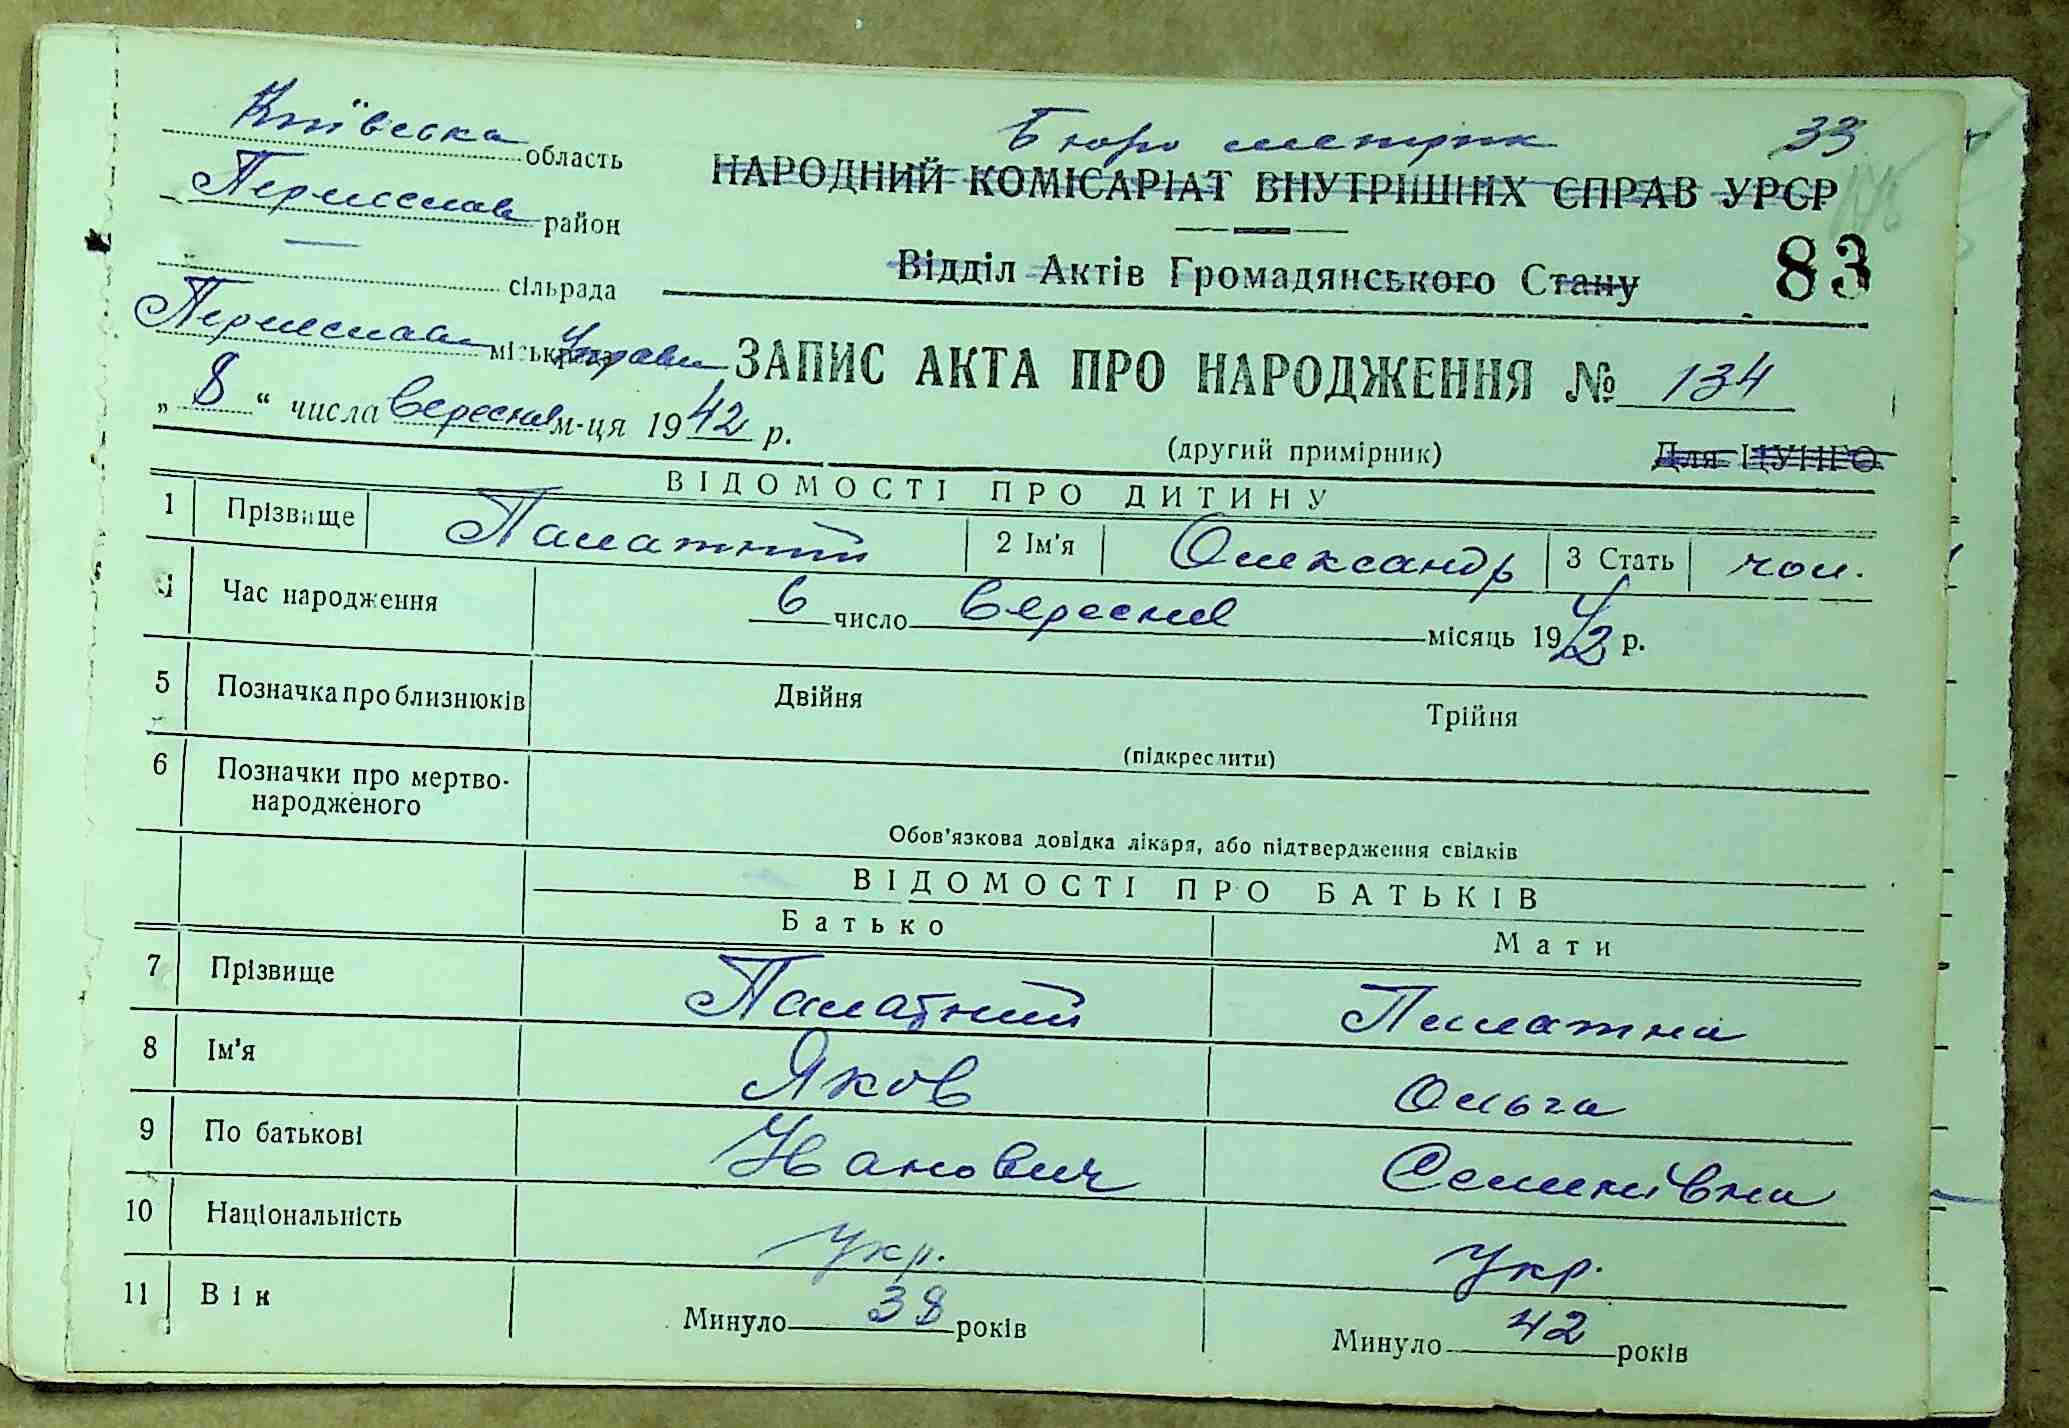 Київська область
Бюро метрик 33
НАРОДНИЙ КОМІСАРІАТ ВНУТРІШНІХ СПРАВ УРСР
Переяслав район
83
Відділ Актів Громадянського Стану
сільрада
Переяслав міськрада Управи
ЗАПИС АКТА ПРО НАРОДЖЕННЯ № 134
„ 8 “ числа вересня м-ця 1942 р.
(другий примірник) Для ЦУНГО
ВІДОМОСТІ ПРО ДИТИНУ
1 Прізвище Палатний 2 Ім'я Олександр 3 Стать чол.
4 Час народження 6 число вересня місяць 1942 р.
5 Позначка про близнюків Двійня Трійня
(підкреслити)
6 Позначки про мертво-
народженого
Обов'язкова довідка лікаря, або підтвердження свідків
ВІДОМОСТІ ПРО БАТЬКІВ
Батько Мати
7 Прізвище Палатний Палатна
8 Ім'я Яков Ольга
9 По батькові Іванович Семенівна
10 Національність Укр. Укр.
11 Вік Минуло 38 років Минуло 42 років